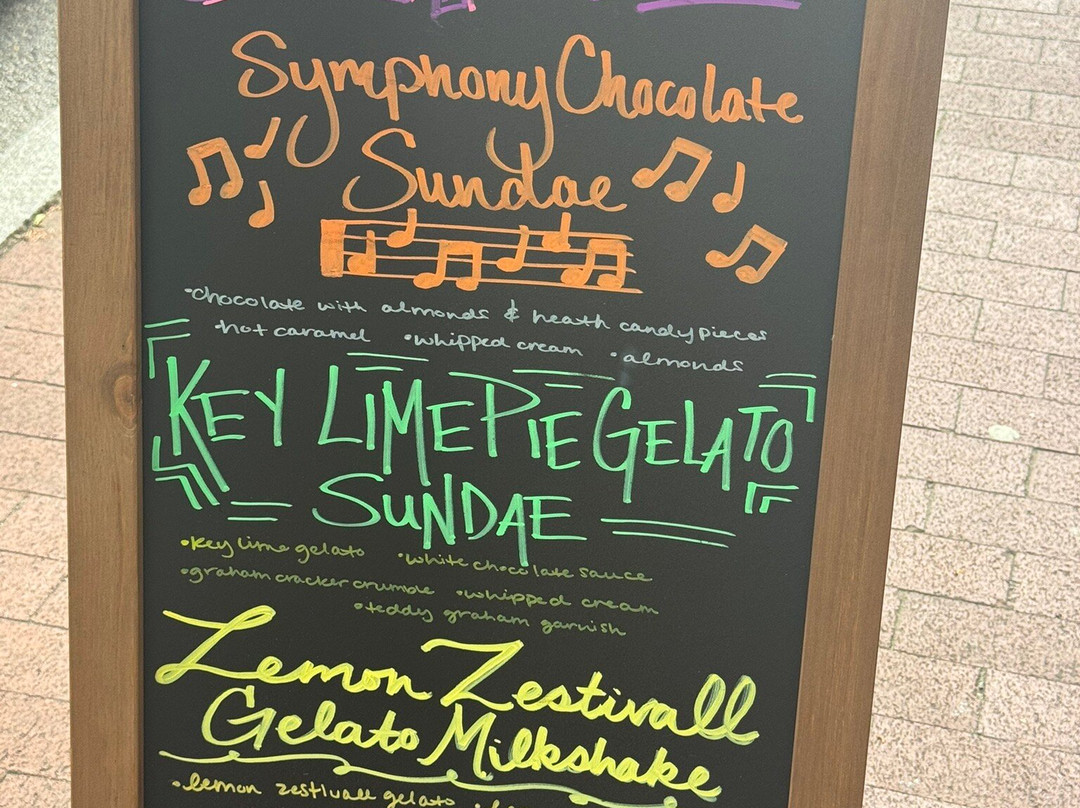 Symphony Chocolate
Sundae
•chocolate with almonds & heath candy pieces
•hot caramel •whipped cream •almonds
KEY LIME PIE GELATO
SUNDAE
•key lime gelato •white chocolate sauce
•graham cracker crumble •whipped cream
•teddy graham garnish
Lemon Zestivall
Gelato Milkshake
•lemon zestivall gelato